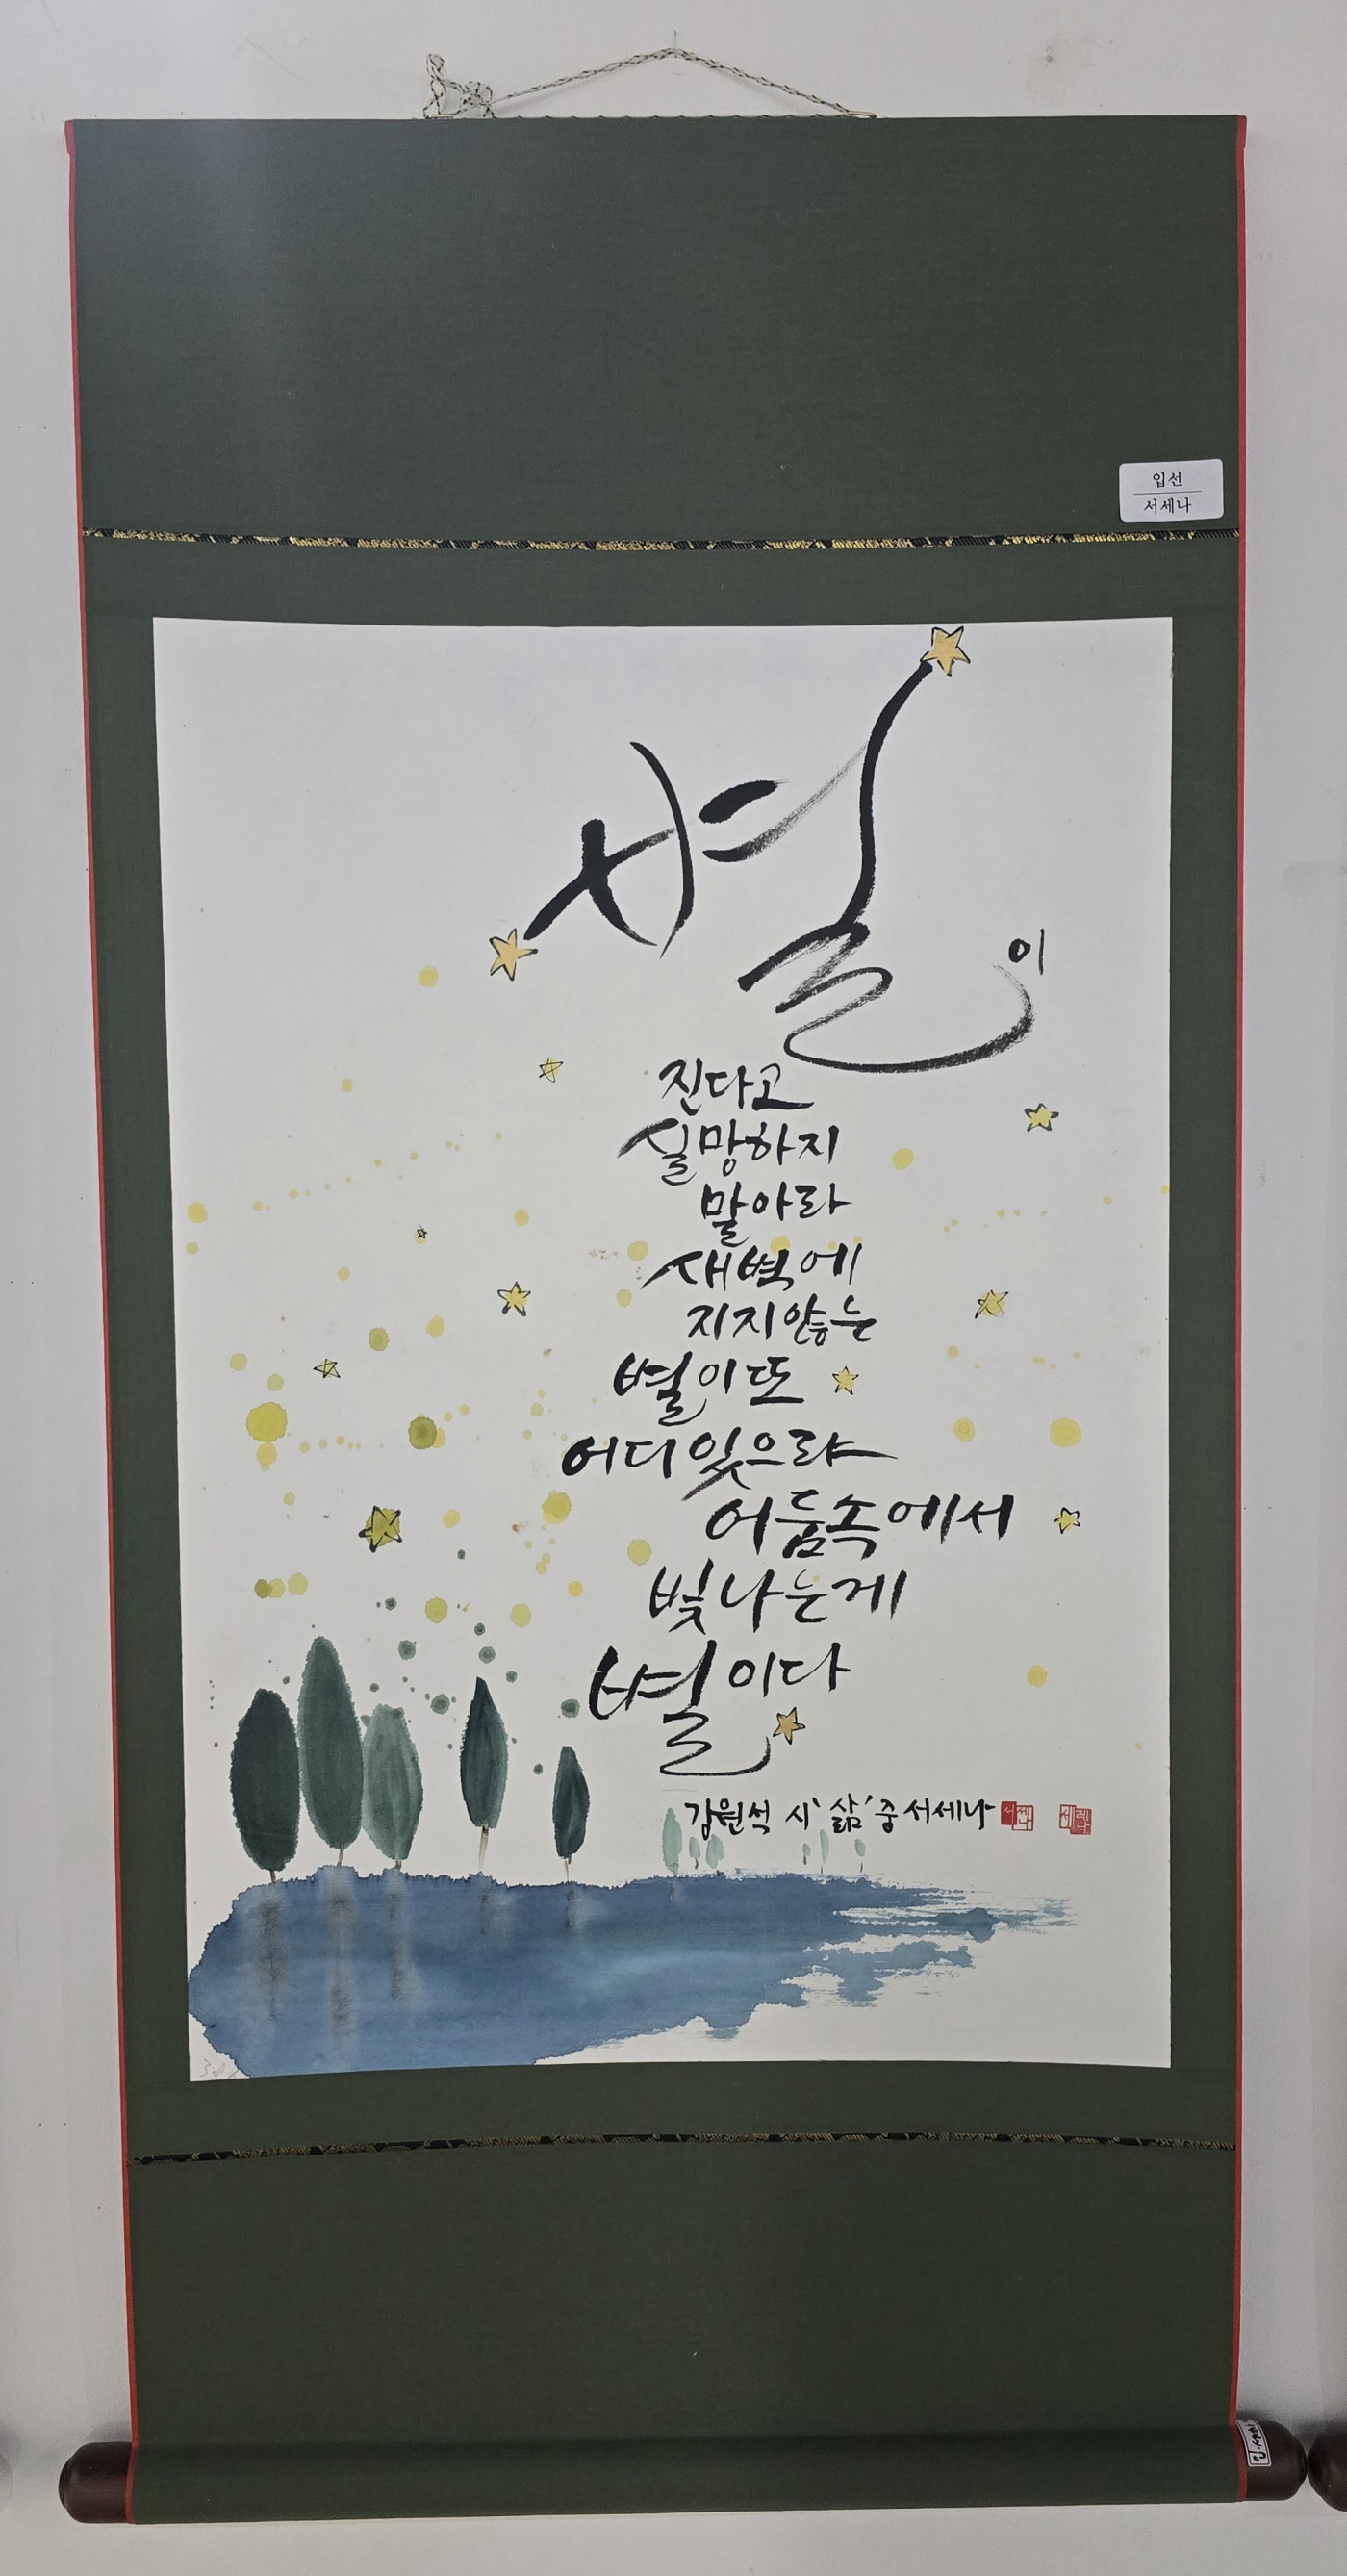 입선
서세나
별이
진다고
실망하지
말아라
새벽에
지지않는
별이또
어디있으랴
어둠속에서
빛나는게
별이다
김원석 시 '삶' 중 서세나